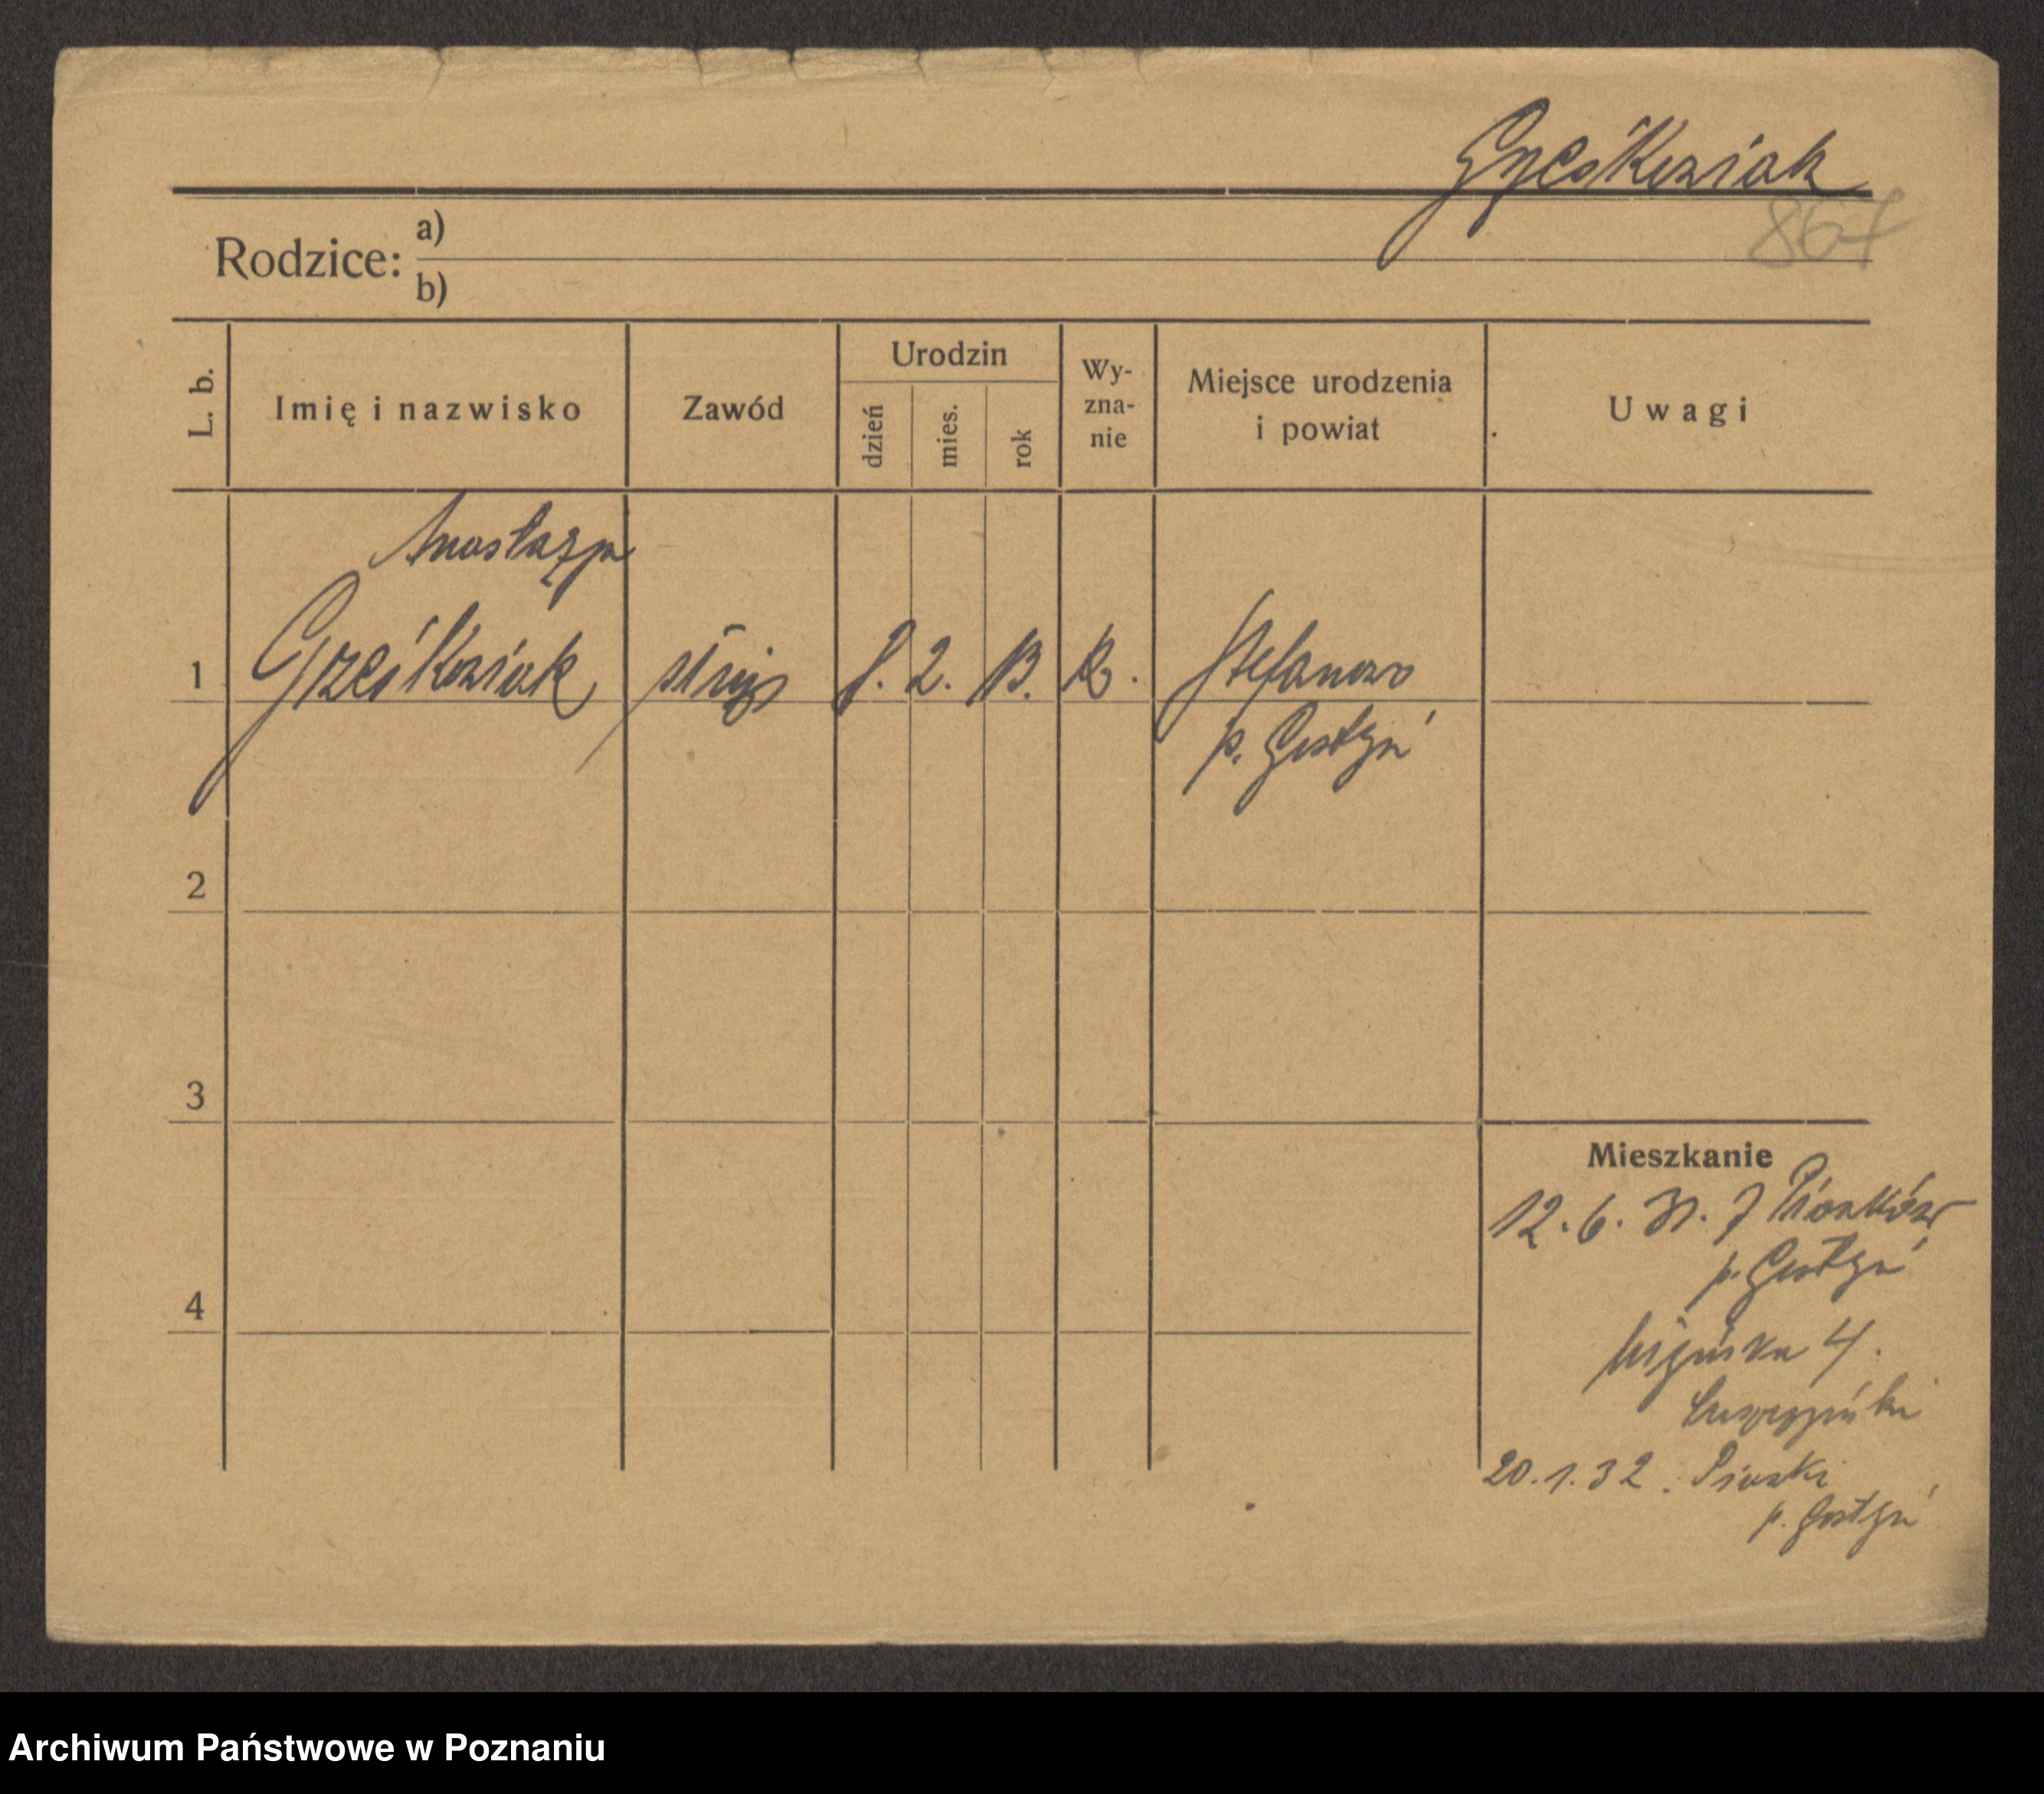 Grześkowiak
867
Rodzice: a)
b)
L. b.
Imię i nazwisko
Zawód
Urodzin
dzień
mies.
rok
Wy-
zna-
nie
Miejsce urodzenia
i powiat
Uwagi
Anastazja
1 Grześkowiak 2. 13. Stefanowo
p. Gostyń
2
3
4
Mieszkanie
12. 6. 31. z
p. Gostyń
4.
20. 1. 32. Piaski
p. Gostyń
Archiwum Państwowe w Poznaniu